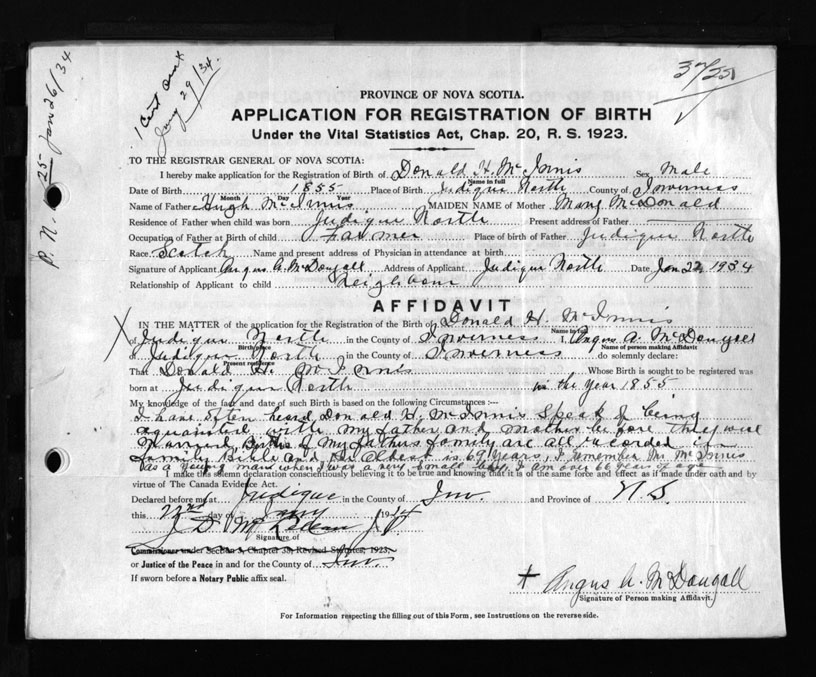 1 Cent due
Jany 29/34.
3 7/25
P. N. 25 Jan 26/34
PROVINCE OF NOVA SCOTIA.
APPLICATION FOR REGISTRATION OF BIRTH
Under the Vital Statistics Act, Chap. 20, R. S. 1923.
TO THE REGISTRAR GENERAL OF NOVA SCOTIA:
I hereby make application for the Registration of Birth of Donald H. McInnis Sex Male
Name in full
Date of Birth 1855 Place of Birth Judique North County of Inverness
Month Day Year
Name of Father Hugh McInnis MAIDEN NAME of Mother Mary McDonald
Residence of Father when child was born Judique North Present address of Father
Occupation of Father at Birth of child Farmer Place of birth of Father Judique North
Race Scotch Name and present address of Physician in attendance at birth
Signature of Applicant Angus A. McDougall Address of Applicant Judique North Date Jan 22, 1934
Relationship of Applicant to child Neighbour
AFFIDAVIT
IN THE MATTER of the application for the Registration of the Birth of Donald H. McInnis
Name in full
X of Judique North in the County of Inverness I, Angus A. McDougall
Birthplace Name of person making Affidavit
of Judique North in the County of Inverness do solemnly declare:
Present residence
That Donald H. McInnis Whose Birth is sought to be registered was
born at Judique North in the year 1855
My knowledge of the fact and date of such Birth is based on the following Circumstances:—
I have often heard Donald H. McInnis Speak of being
aquainted with my father and mother before they were
Married, Births of my fathers family are all recorded in
family Bible and the Oldest is 69 years, I remember Mr McInnis
as a young man when I was a very small boy, I am over 66 years of age
I make this solemn declaration conscientiously believing it to be true and knowing that it is of the same force and effect as if made under oath and by
virtue of The Canada Evidence Act.
Declared before me at Judique in the County of Inv. and Province of N.S.
this 22nd day of Jany 1934
J. D. McLellan J.P.
Signature of
Commissioner under Section 3, Chapter 38, Revised Statutes, 1923,
or Justice of the Peace in and for the County of Inv.
If sworn before a Notary Public affix seal.
+ Angus A. McDougall
Signature of Person making Affidavit.
For Information respecting the filling out of this Form, see Instructions on the reverse side.